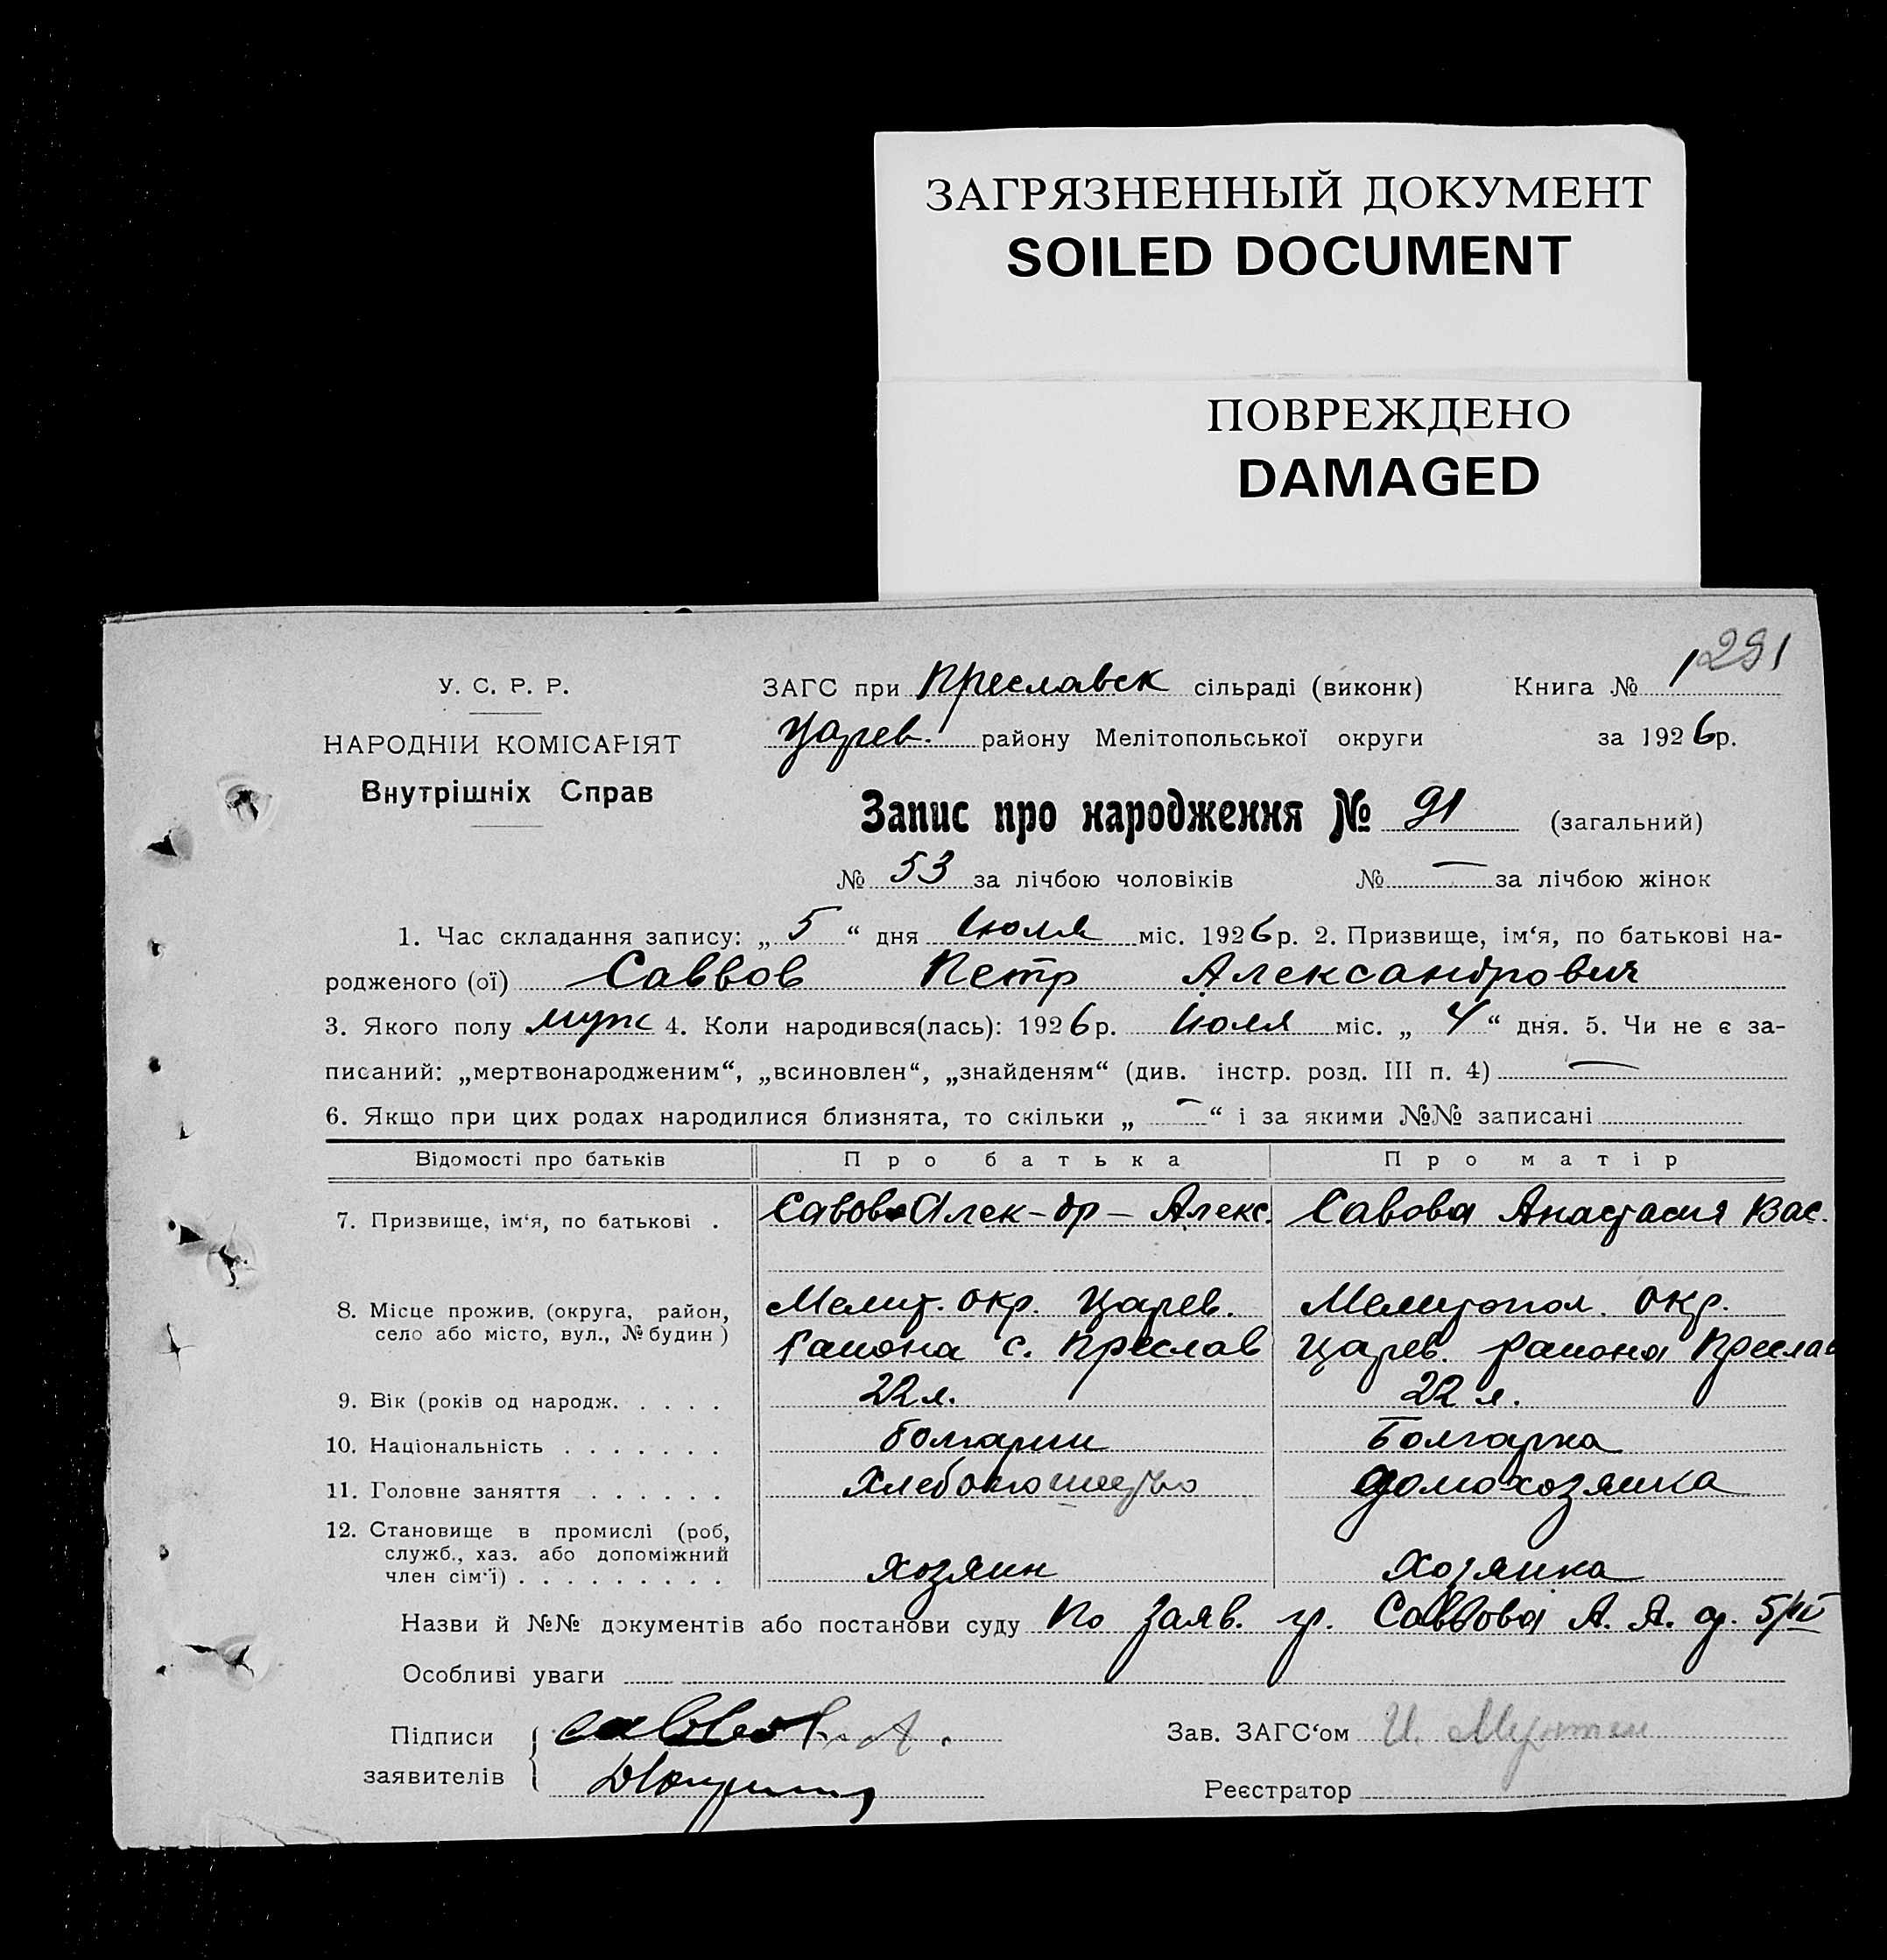 ЗАГРЯЗНЕННЫЙ ДОКУМЕНТ
SOILED DOCUMENT
ПОВРЕЖДЕНО
DAMAGED
291
У. С. Р. Р.
НАРОДНІЙ КОМІСАРІЯТ
Внутрішніх Справ
ЗАГС при Преславск сільраді (виконк) Книга № 1
Царев. району Мелітопольської округи за 1926р.
Запис про народження № 91 (загальний)
№ 53 за лічбою чоловіків № — за лічбою жінок
1. Час складання запису: „ 5 “ дня Июля міс. 1926р. 2. Призвище, ім‘я, по батькові на-
родженого (ої) Саввов Петр Александрович
3. Якого полу муж 4. Коли народився(лась): 1926р. Июля міс. „ 4 “ дня. 5. Чи не є за-
писаний: „мертвонародженим“, „всиновлен“, „знайденям“ (див. інстр. розд. III п. 4) —
6. Якщо при цих родах народилися близнята, то скільки „ — “ і за якими №№ записані
Відомості про батьків Про батька Про матір
7. Призвище, ім‘я, по батькові . Савов Алек-др- Алекс. Савова Анастасия Вас.
8. Місце прожив. (округа, район, Мелит. окр. Царев. Мелитопол. окр.
село або місто, вул., № будин) района с. Преслав Царев. района Преслав
9. Вік (років од народж. . . . . 22 л. 22 л.
10. Національність . . . . . . . болгарин Болгарка
11. Головне заняття . . . . . . Домохозяика
12. Становище в промислі (роб,
служб., хаз. або допоміжний
член сім‘ї) . . . . . . . . . Хозяин Хозяика
Назви й №№ документів або постанови суду По заяв. гр. Саввова А. А. д. 5/VII
Особливі уваги
Підписи Саввов А. Зав. ЗАГС‘ом И.
заявителів
Реєстратор